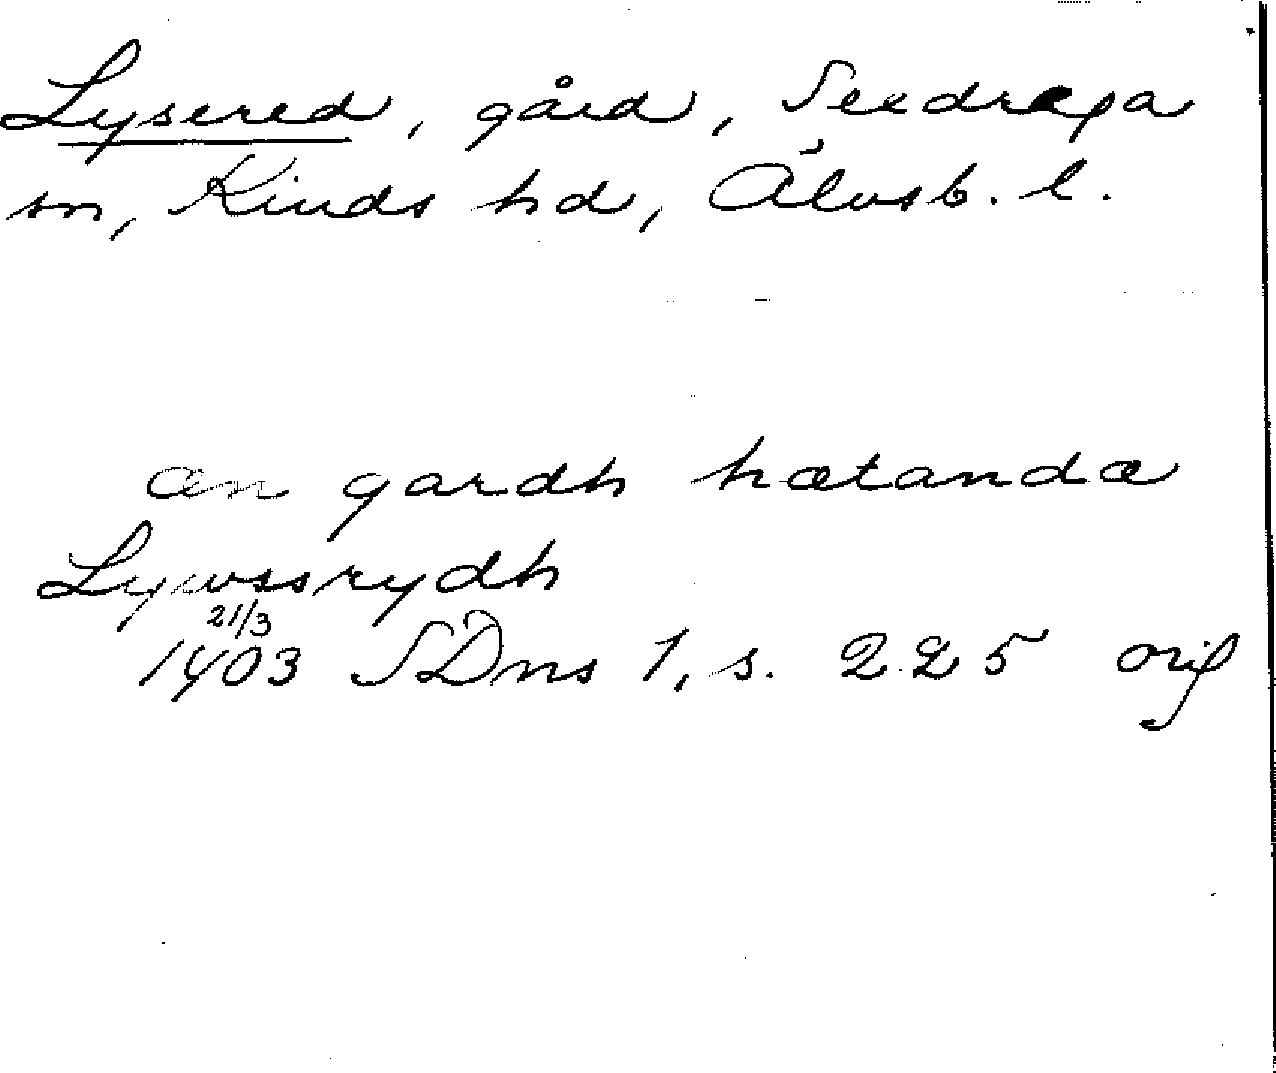 Lysered, gård, Seedraga
sn, Kinds hd, Älvsb. l.
æn gardh hætandæ
Lywssrydh
21/3
1403 SDns 1, s. 225 orig